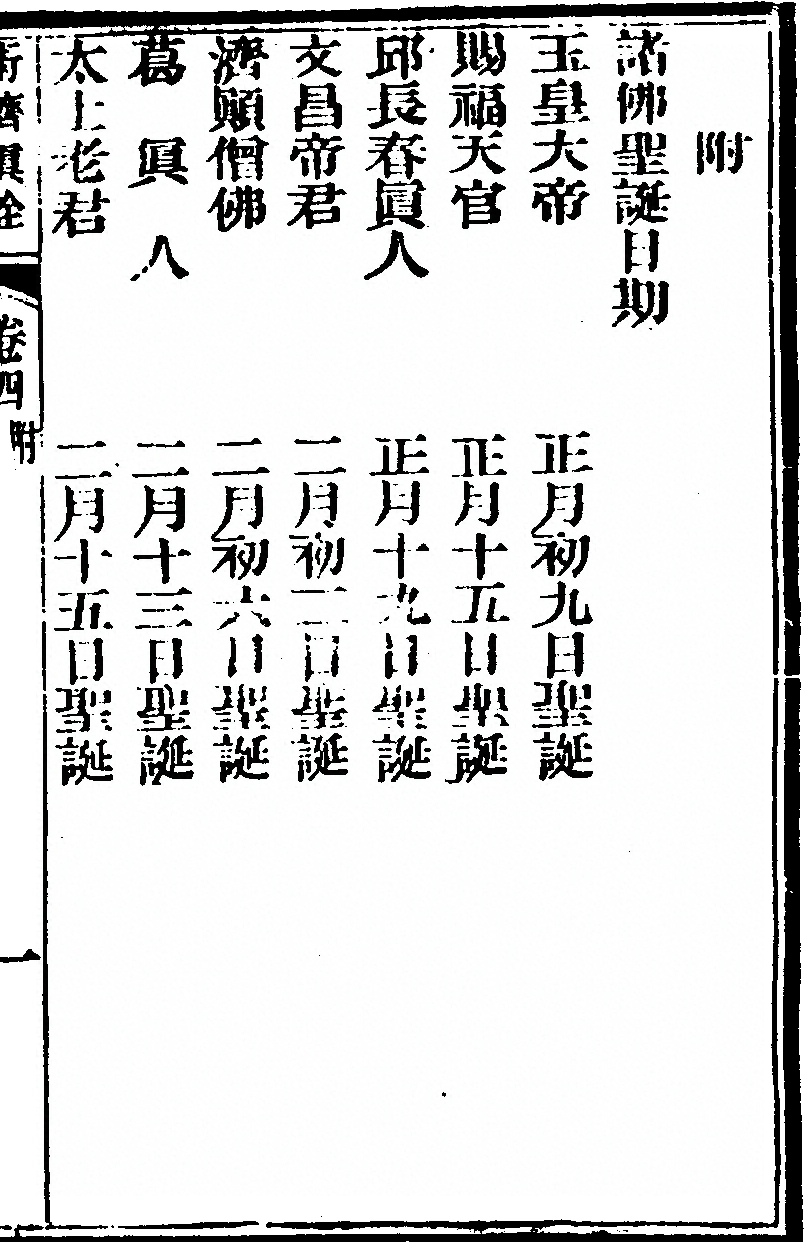 附
諸佛聖誕日期
玉皇大帝 正月初九日聖誕
賜福天官 正月十五日聖誕
邱長春眞人 正月十九日聖誕
文昌帝君 二月初三日聖誕
濟顚僧佛 二月初六日聖誕
葛眞人 二月十三日聖誕
太上老君 二月十五日聖誕
卷四 附 一